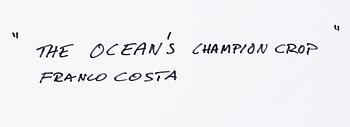 " THE OCEAN'S CHAMPION CROP "
FRANCO COSTA